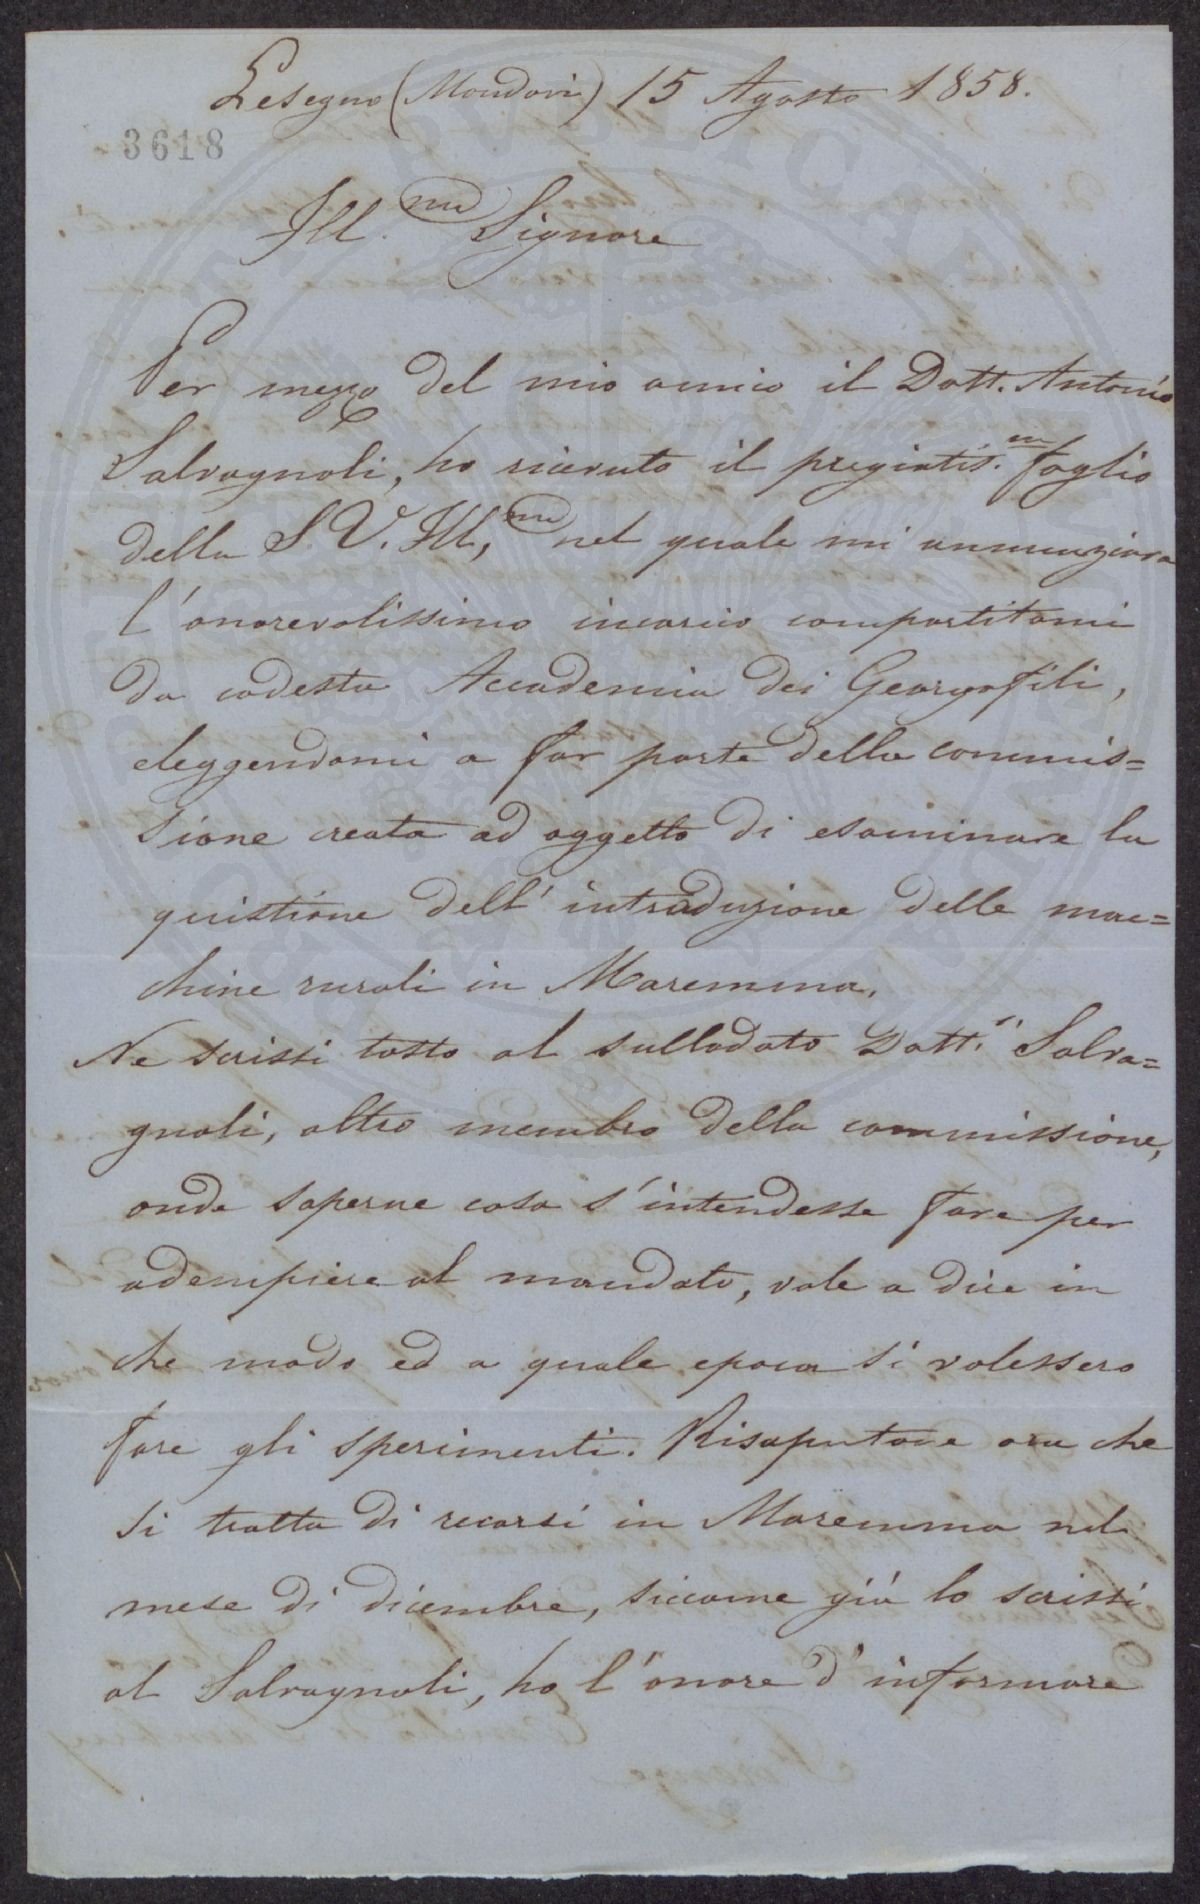 Lesegno (Mondovì) 15 Agosto 1858.
3618
Ill.mo Signore
Per mezzo del mio amico il Dott. Antonio
Salvagnoli, ho ricevuto il pregiatis.mo foglio
della S. V. Ill,ma nel quale mi annunziava
l'onorevolissimo incarico compartitomi
da codesta Accademia dei Georgofili,
eleggendomi a far parte della commis=
sione creata ad oggetto di esaminare la
quistione dell'introduzione delle mac=
chine rurali in Maremma.
Ne scrissi tosto al sullodato Dott.r Salva=
gnoli, altro membro della commissione,
onde saperne cosa s'intendesse fare per
adempiere al mandato, vale a dire in
che modo ed a quale epoca si volessero
fare gli sperimenti. Risaputone ora che
si tratta di recarsi in Maremma nel
mese di dicembre, siccome già lo scrissi
al Salvagnoli, ho l'onore d'informare